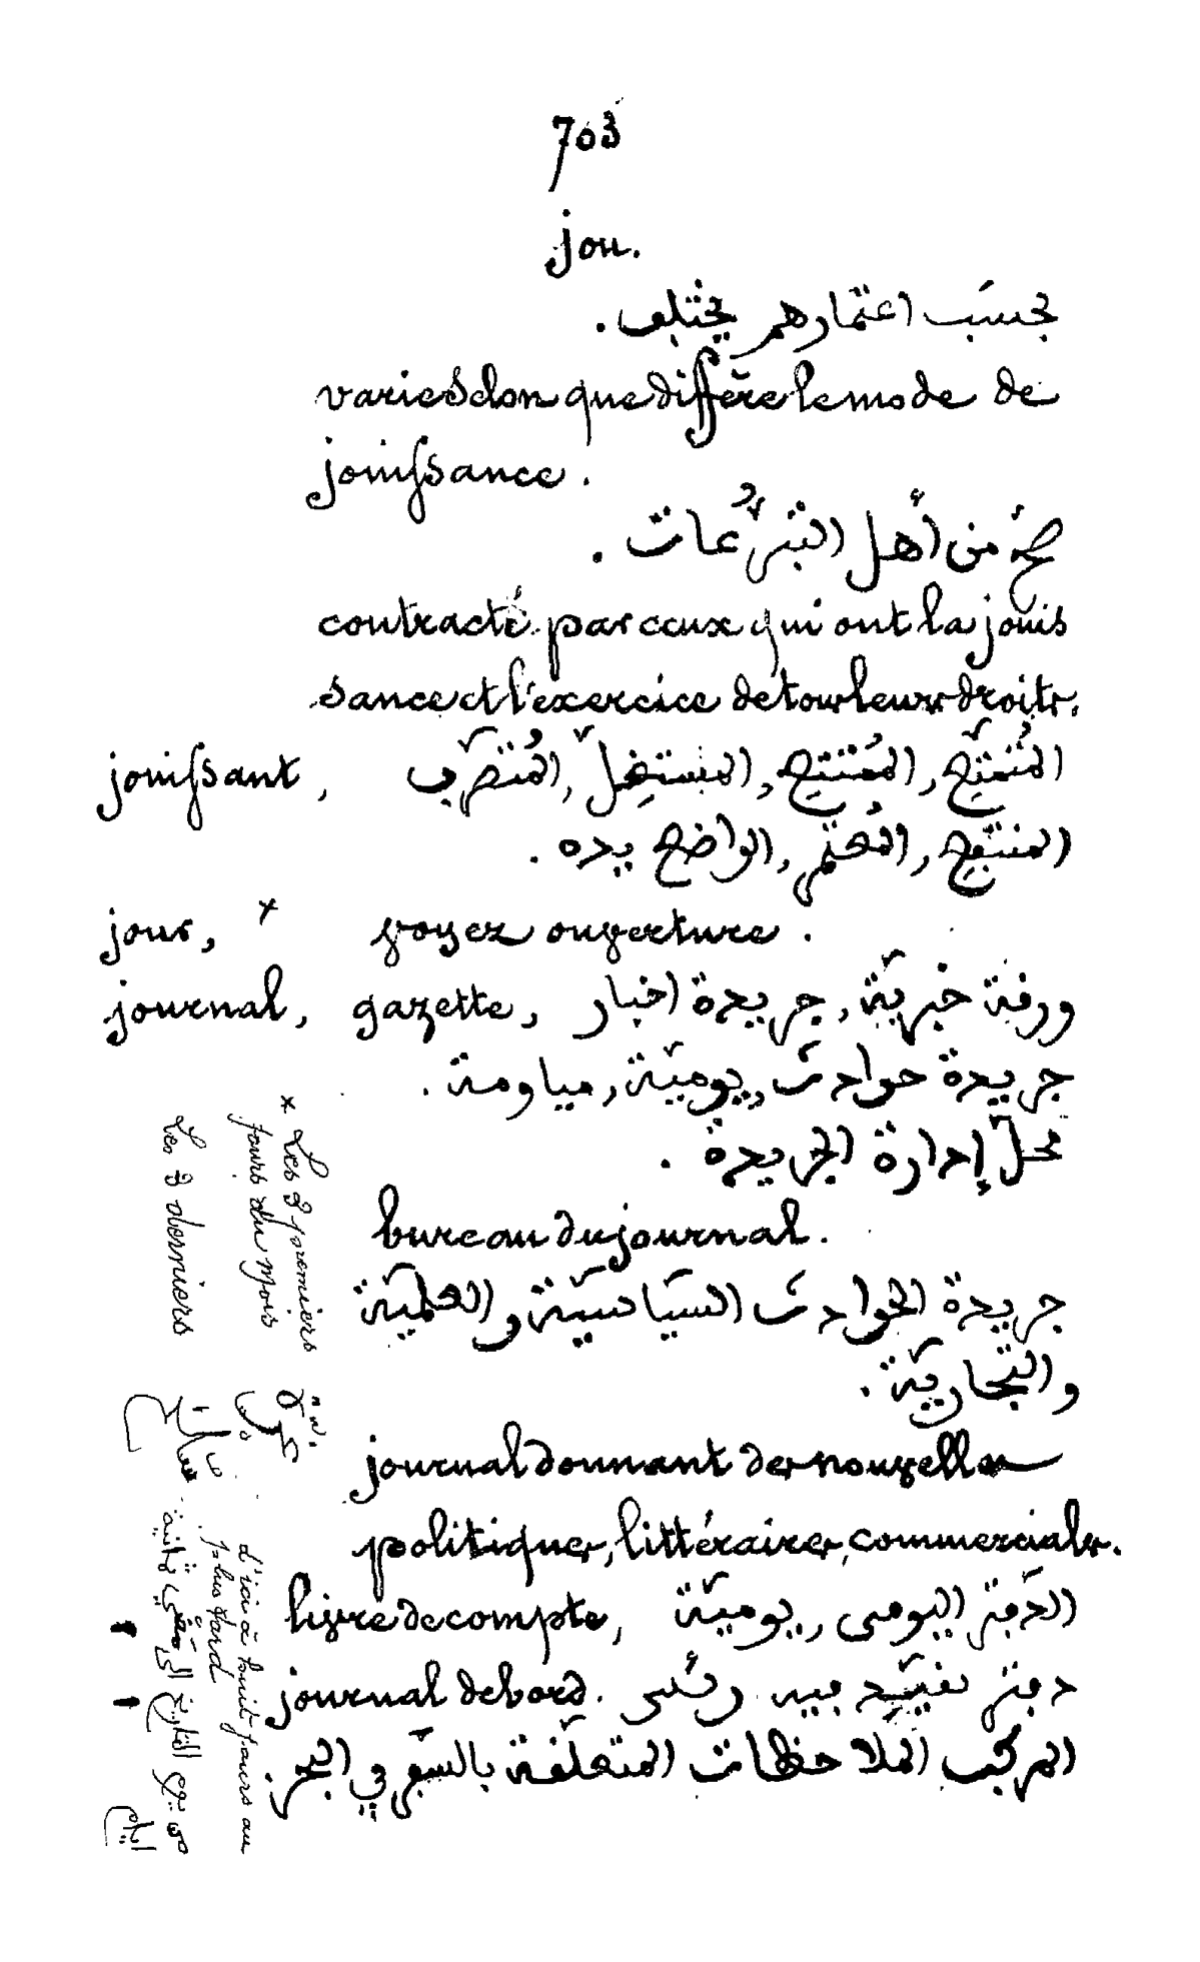 703
jou.
بحسَب اعتمارهم يختلف.
varie selon que diffère le mode de
jouissance.
صحّ من أهل التبرُّعات.
contracté par ceux qui ont la jouis
sance et l'exercice de tous leurs droits.
jouissant, المُتمتِّع, المُنتفِع, المستغِلّ, المُتصَرِّف
المنتفِع, المُعتمر, الواضع يده.
jour, × voyez ouverture.
journal, gazette, ورقة خبريّة, جريدة اخبار
جريدة حوادث, يوميّة, مياومة.
محلّ إدارة الجريدة.
bureau du journal.
جريدة الحوادث السيَاسيّة والعلميّة
والتّجاريّة.
journal donnant des nouvelles
politiques, littéraires, commerciales.
livre de compte, الدّفتر اليومى, يوميّة
journal de bord. دفتر تقييد فيه رئس
المركب الملاحظات المتعلّقة بالسّفر في البحر.
× Les 3 premiers
jours du mois
غرة
Les 3 derniers
d'ici à huit jours au
plus tard
من يوم التاريخ الى مضي ثمانية
ايام